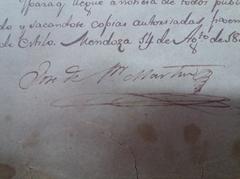 paraq. llegue a noticia de todos publi
do y sacandose copias autorisadas,
de Estilo. Mendoza 14 de Ag.to de 18
Jose de Sn. Martin